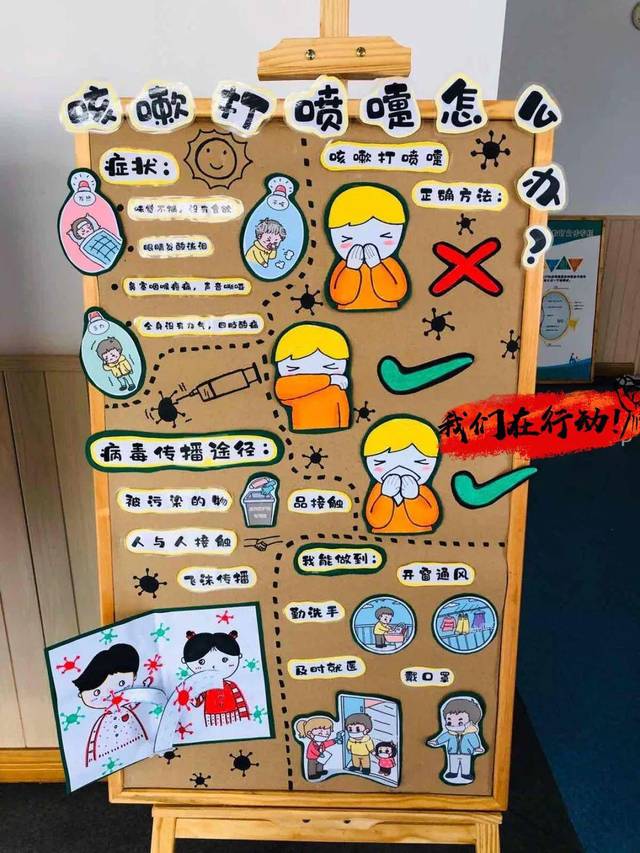 咳嗽打喷嚏怎么办？
症状：
发热
干咳
味觉不振，没有食欲
眼睛发酸流泪
鼻塞咽喉疼痛，声音嘶哑
乏力
全身没有力气，四肢酸痛
咳嗽打喷嚏
正确方法：
我们在行动！
病毒传播途径：
被污染的物品接触
人与人接触
飞沫传播
我能做到：
开窗通风
勤洗手
及时就医
戴口罩